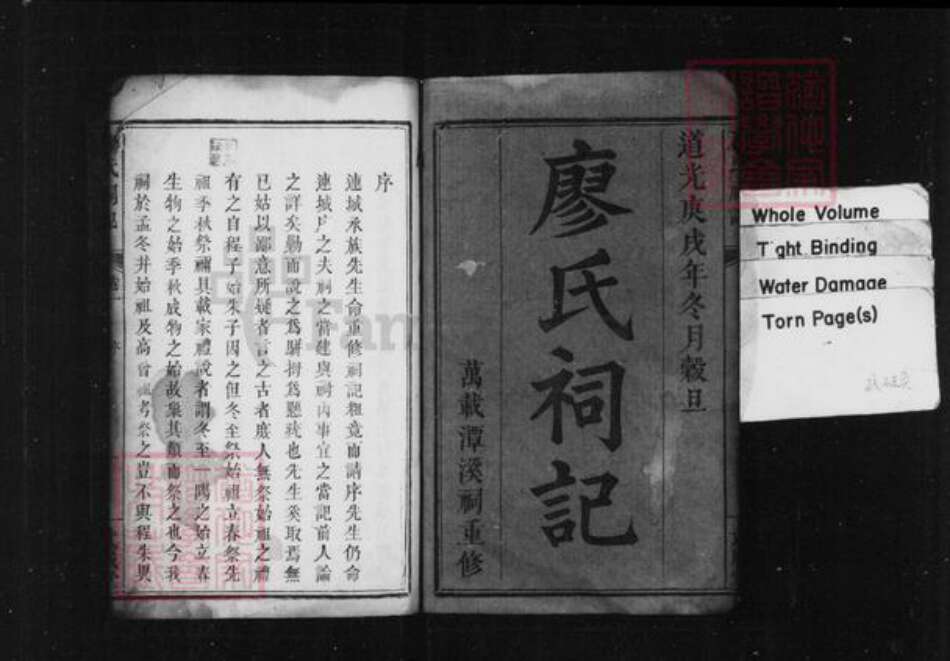 道光庚戌年冬月穀旦
廖氏祠記
萬載潭溪祠重修
序
連城承族先生命重修祠記粗竟而請序先生仍命
連城戶之夫祠之當建與祠內事宜之當記前人論
之詳矣勤而說之為駢拇為懸疣也先生奚取焉無
已姑以鄙意所疑者言之古者庶人無祭始祖之禮
有之自程子始朱子因之但冬至祭始祖立春祭先
祖季秋祭禰具載家禮說者謂冬至一陽之始立春
生物之始季秋成物之始故象其類而祭之也今我
祠於孟冬并始祖及高曾祖考祭之豈不與程朱異
Whole Volume
Tight Binding
Water Damage
Torn Page(s)